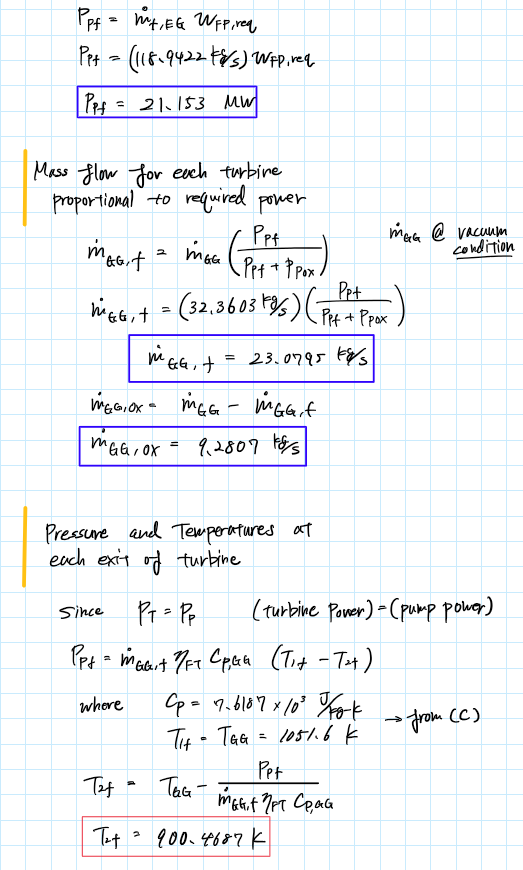 P_Pf = ṁ_f,EG W_FP,req
P_Pf = (118.9422 kg/s) W_FP,req
P_Pf = 21.153 MW
Mass flow for each turbine
proportional to required power
ṁ_GG,f = ṁ_GG (P_Pf / (P_Pf + P_Pox))
ṁ_GG @ vacuum
condition
ṁ_GG,f = (32.3603 kg/s) (P_Pf / (P_Pf + P_Pox))
ṁ_GG,f = 23.0795 kg/s
ṁ_GG,ox = ṁ_GG - ṁ_GG,f
ṁ_GG,ox = 9.2807 kg/s
Pressure and Temperatures at
each exit of turbine
since P_T = P_P (turbine power) = (pump power)
P_Pf = ṁ_GG,f η_FT C_p,GG (T_1f - T_2f)
where C_p = 7.6187 × 10³ J/kg-K
T_1f = T_GG = 1051.6 K → from (C)
T_2f = T_GG - P_Pf / (ṁ_GG,f η_FT C_p,GG)
T_2f = 900.4687 K